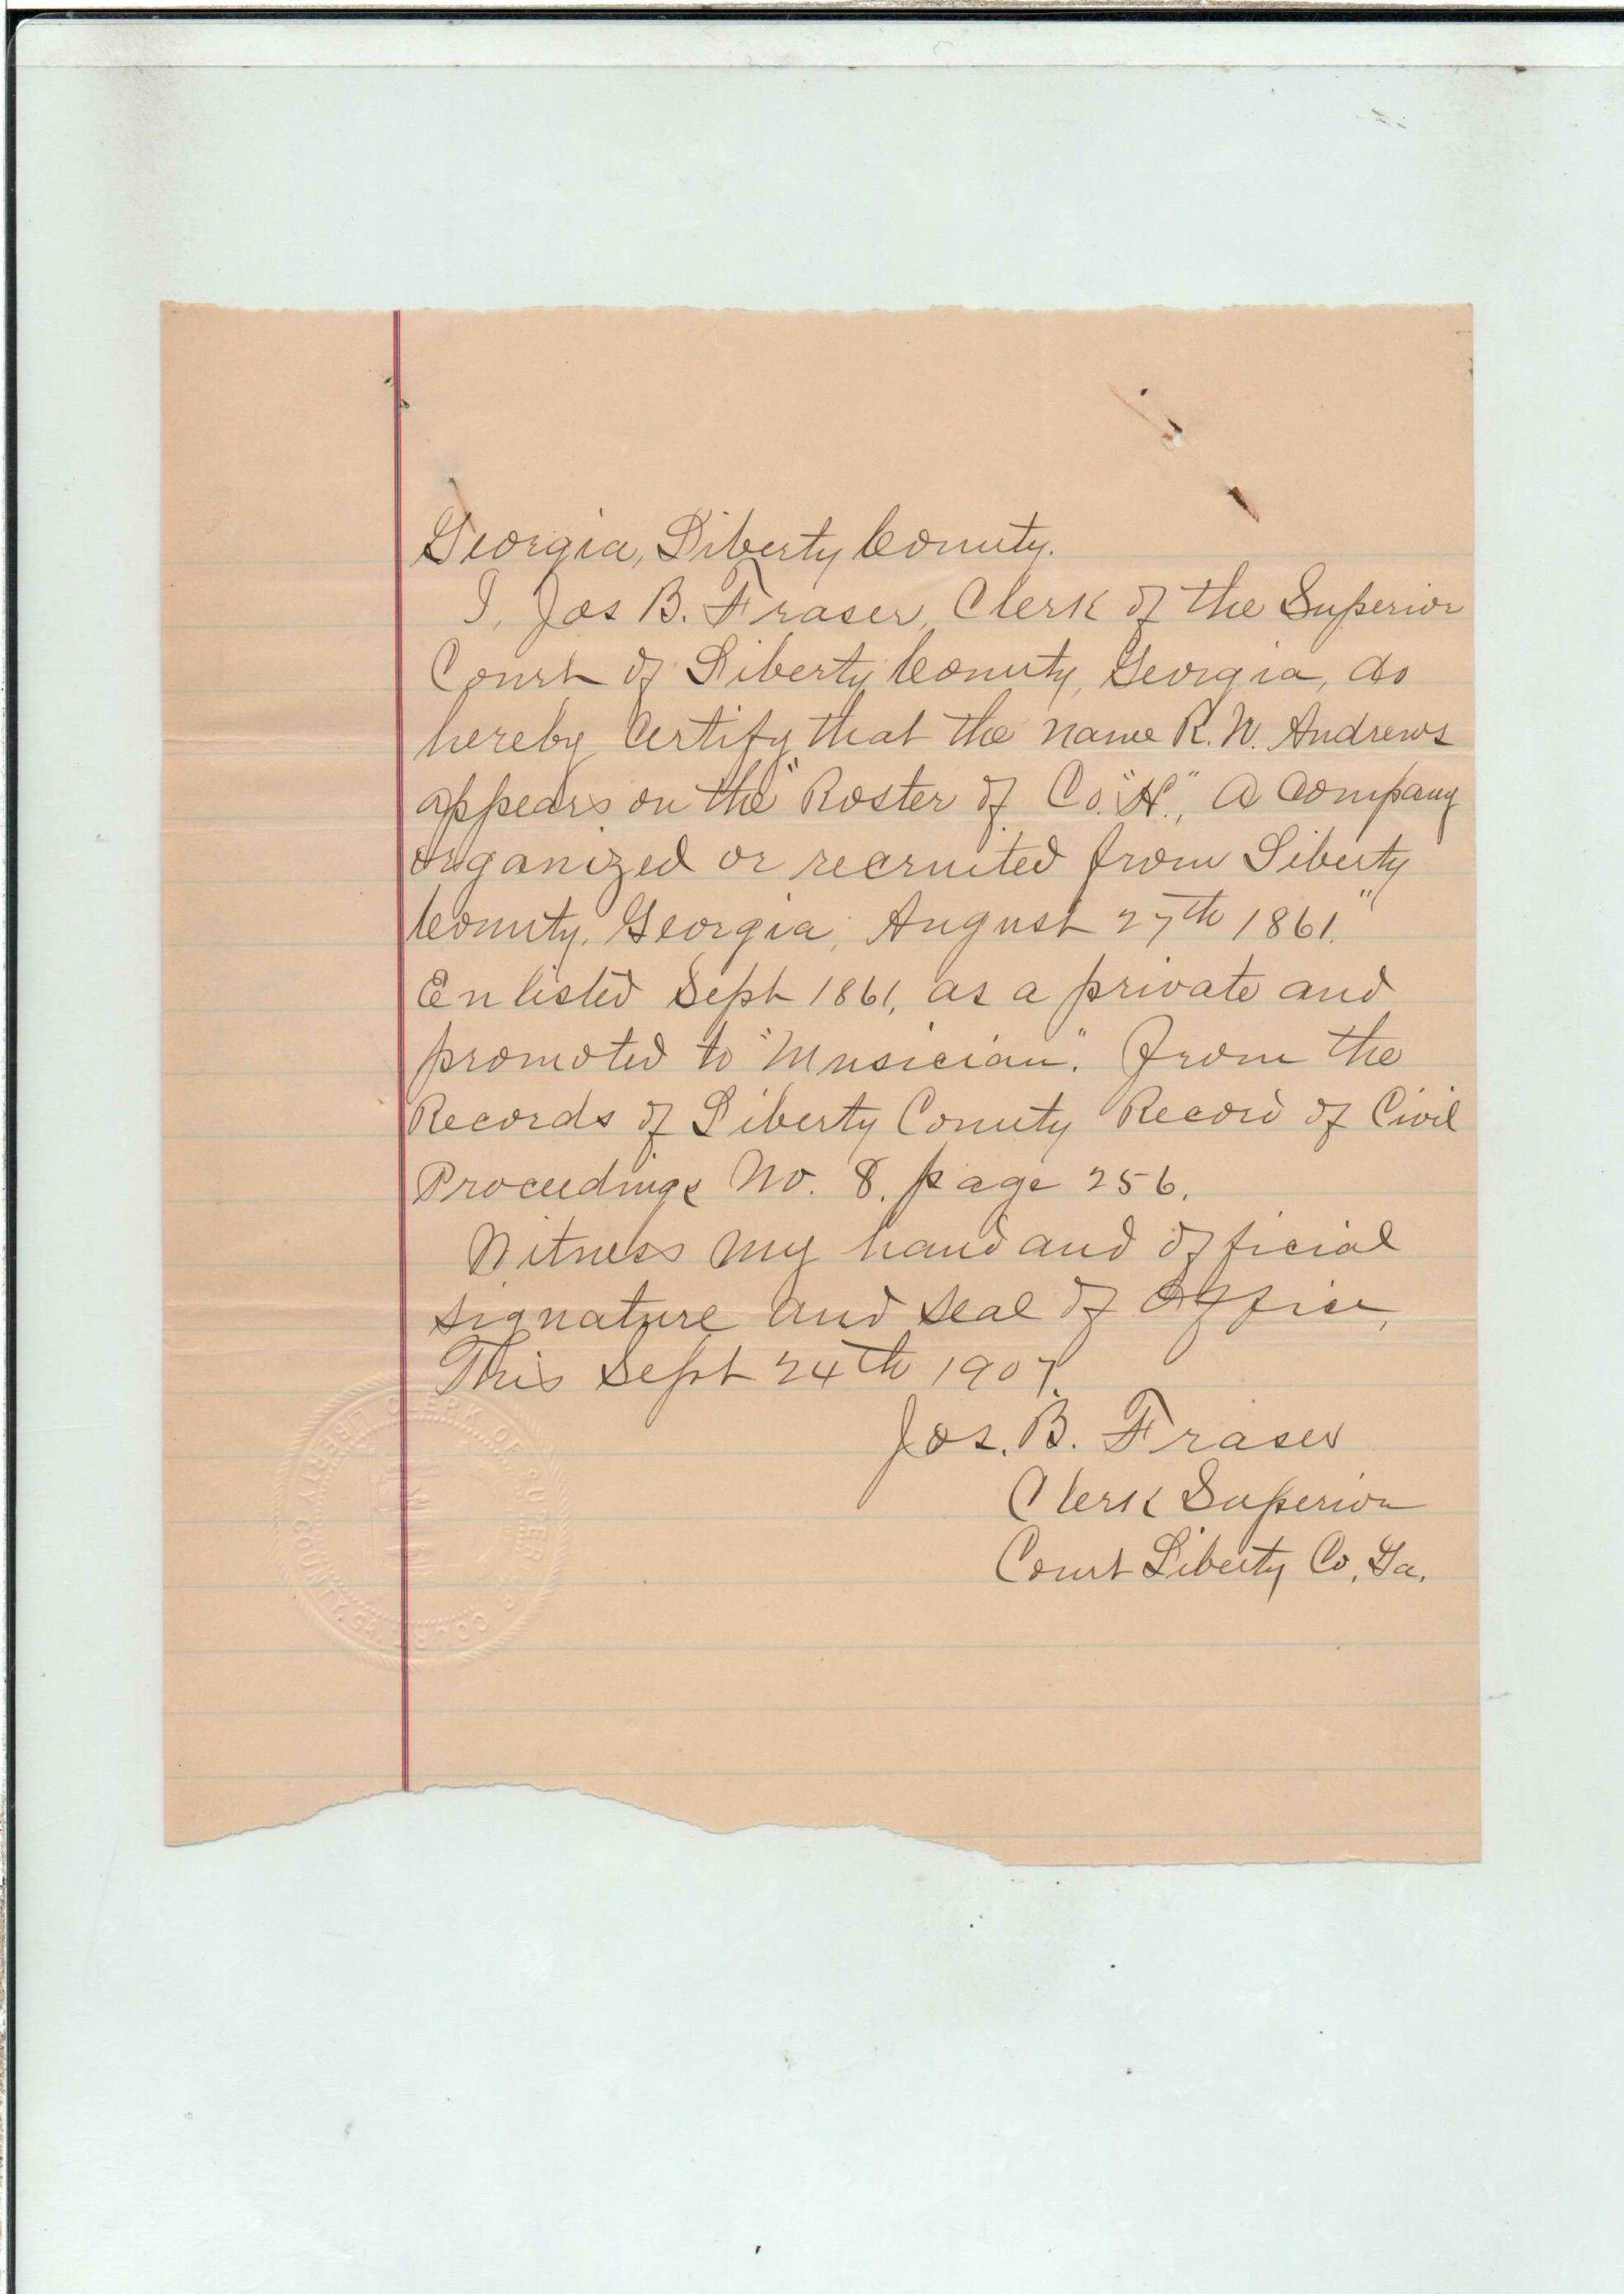 Georgia, Liberty County.
I, Jos B. Fraser, Clerk of the Superior
Court of Liberty County, Georgia, do
hereby certify that the name R. W. Andrews
appears on the "Roster of Co. "H", a company
organized or recruited from Liberty
County, Georgia, August 27th 1861."
Enlisted Sept 1861, as a private and
promoted to "Musician". From the
Records of Liberty County Record of Civil
Proceedings No. 8. page 256.
Witness my hand and official
signature and seal of office,
This Sept 24th 1907.
Jos. B. Fraser
Clerk Superior
Court Liberty Co, Ga.
CLERK OF SUPER COUR LIBERTY COUNTY, GA.